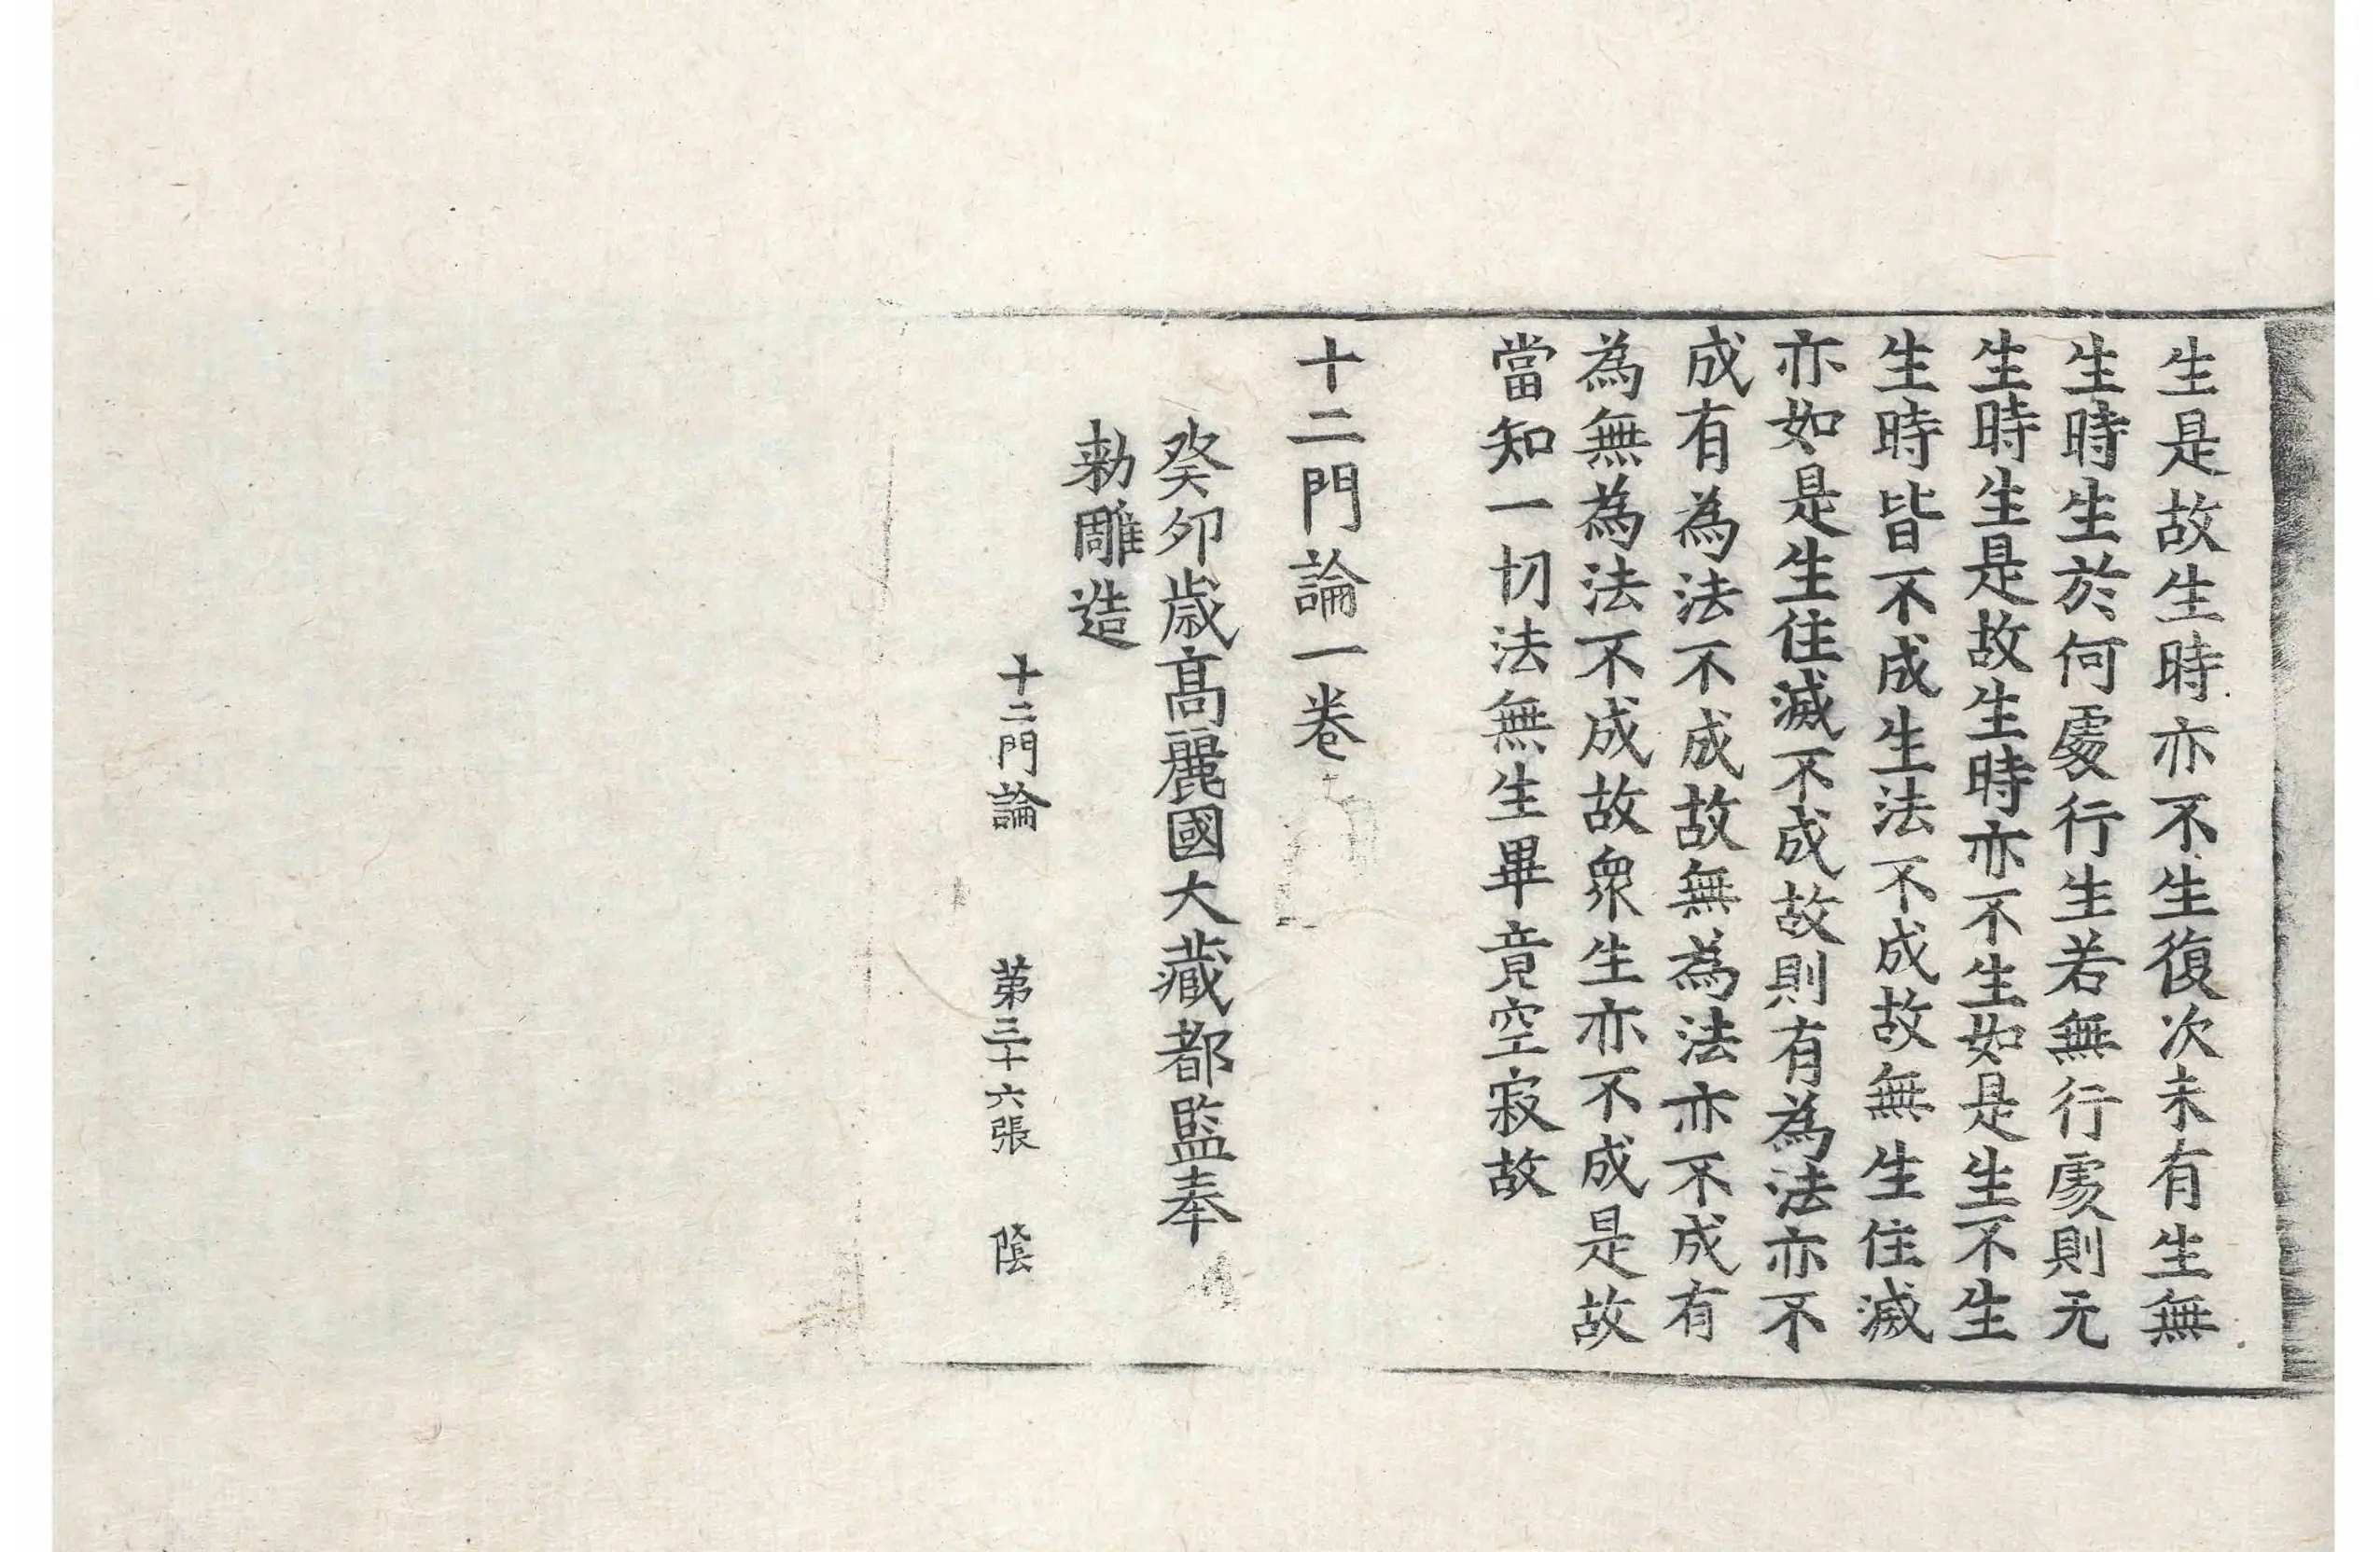 生是故生時亦不生復次未有生無
生時生於何處行生若無行處則无
生時生是故生時亦不生如是生不生
生時皆不成生法不成故無生住滅
亦如是生住滅不成故則有為法亦不
成有為法不成故無為法亦不成有
為無為法不成故衆生亦不成是故
當知一切法無生畢竟空寂故
十二門論一卷
癸卯歲高麗國大藏都監奉
勑雕造
十二門論 第三十六張 陰